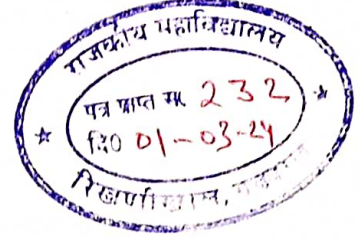 राजकीय महाविद्यालय
पत्र प्राप्त सं० 232
दि० 01-03-24
रिखणीखाल,